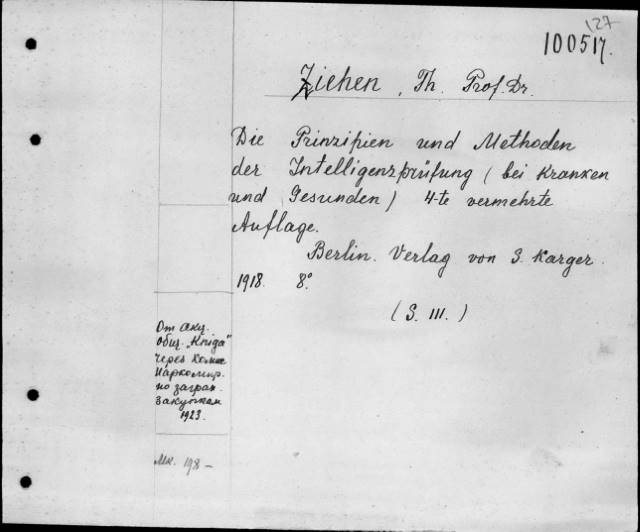 127
100517.
Ziehen, Th. Prof. Dr.
Die Prinzipien und Methoden
der Intelligenzprüfung (bei Kranken
und Gesunden) 4-te vermehrte
Auflage.
Berlin. Verlag von S. Karger.
1918. 8°.
(S. III.)
От акц.
Общ. „Книга"
через
по загран.
закупкам
1923.
198 -